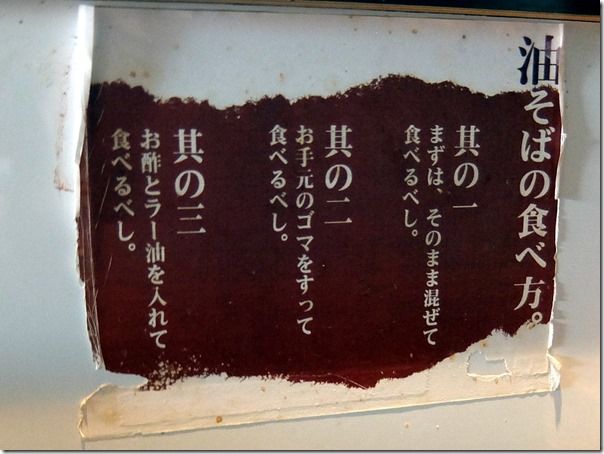 油そばの食べ方。
其の一
まずは、そのまま混ぜて
食べるべし。
其の二
お手元のゴマをすって
食べるべし。
其の三
お酢とラー油を入れて
食べるべし。